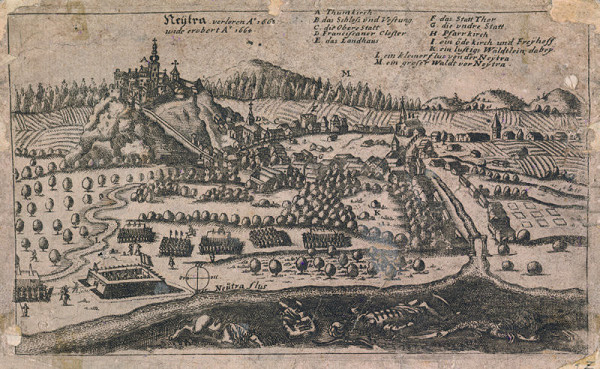 Neÿtra verloren Aº 1663
wide erobert Aº 1664
A Thumkirch
B. das Schloß vnd Vestung
C. die obere statt
D. Franciscaner Closter
E. das Landhaus
F. das Statt Thor
G. die vndre Statt.
H Pfarrkirch
I. ein öde kirch und Freyhoff
K. ein lustigs Waldtlein dabey
L. ein kleiner flus von der Neÿtra
M. ein groser Waldt vor Neÿtra.
M
Neÿtra flus